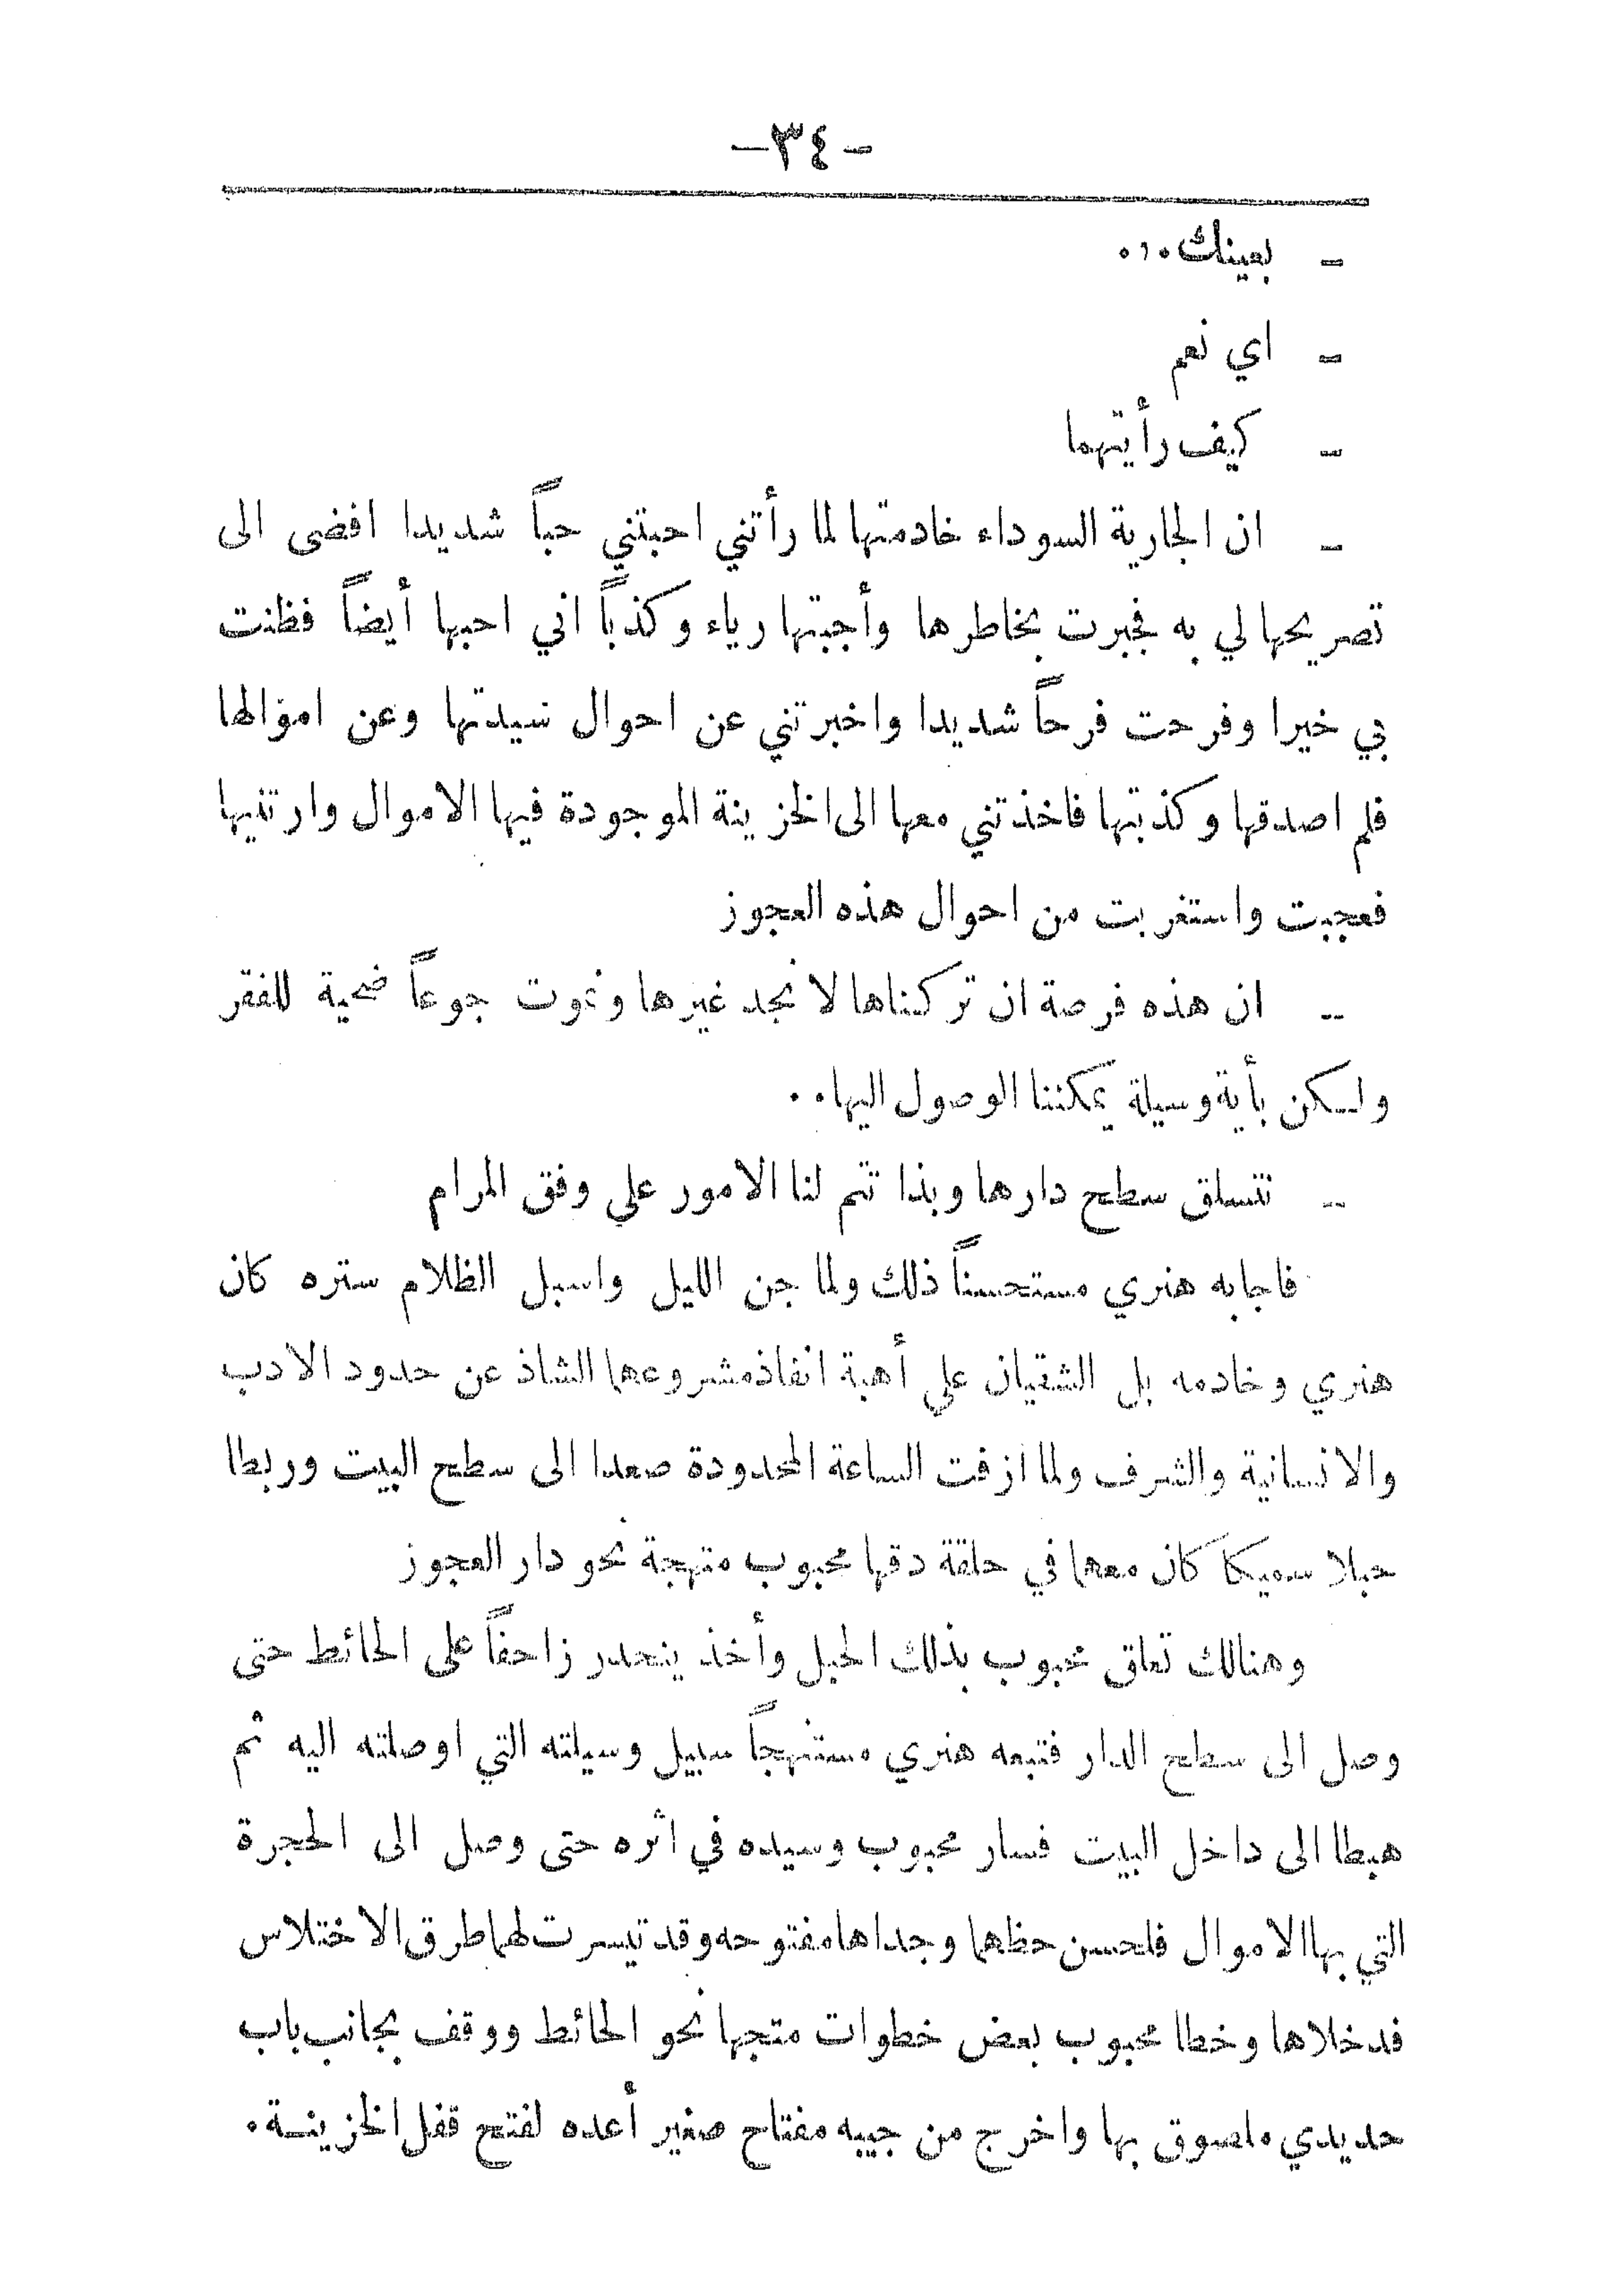 -٣٤-
- بعينك...
- اي نعم
- كيف رأيتهما
- ان الجارية السوداء خادمتها لما رأتني احبتني حباً شديدا افضى الى
تصريحها لي به فجبرت بخاطرها وأجبتها رياء وكذباً اني احبها أيضاً فظنت
بي خيرا وفرحت فرحاً شديدا واخبرتني عن احوال سيدتها وعن اموالها
فلم اصدقها وكذبتها فاخذتني معها الى الخزينة الموجودة فيها الاموال وارتنيها
فعجبت واستغربت من احوال هذه العجوز
- ان هذه فرصة ان تركناها لا نجد غيرها ونموت جوعاً ضحية للفقر
ولكن بأية وسيلة يمكننا الوصول اليها..
- نتسلق سطح دارها وبذا تتم لنا الامور على وفق المرام
فاجابه هنري مستحسناً ذلك ولما جن الليل واسبل الظلام ستره كان
هنري وخادمه بل الشقيان على أهبة انفاذ مشروعهما الشاذ عن حدود الادب
والانسانية والشرف ولما ازفت الساعة المحدودة صعدا الى سطح البيت وربطا
حبلا سميكا كان معهما في حلقة دقها محبوب متهجة نحو دار العجوز
وهنالك تعلق محبوب بذلك الحبل وأخذ ينحدر زاحفاً على الحائط حتى
وصل الى سطح الدار فتبعه هنري مستنهجاً سبيل وسيلته التي اوصلته اليه ثم
هبطا الى داخل البيت فسار محبوب وسيده في اثره حتى وصل الى الحجرة
التي بها الاموال فلحسن حظهما وجداها مفتوحه وقد تيسرت لهما طرق الاختلاس
فدخلاها وخطا محبوب بعض خطوات متجها نحو الحائط ووقف بجانب باب
حديدي ملصوق بها واخرج من جيبه مفتاح صغير أعده لفتح قفل الخزينة.